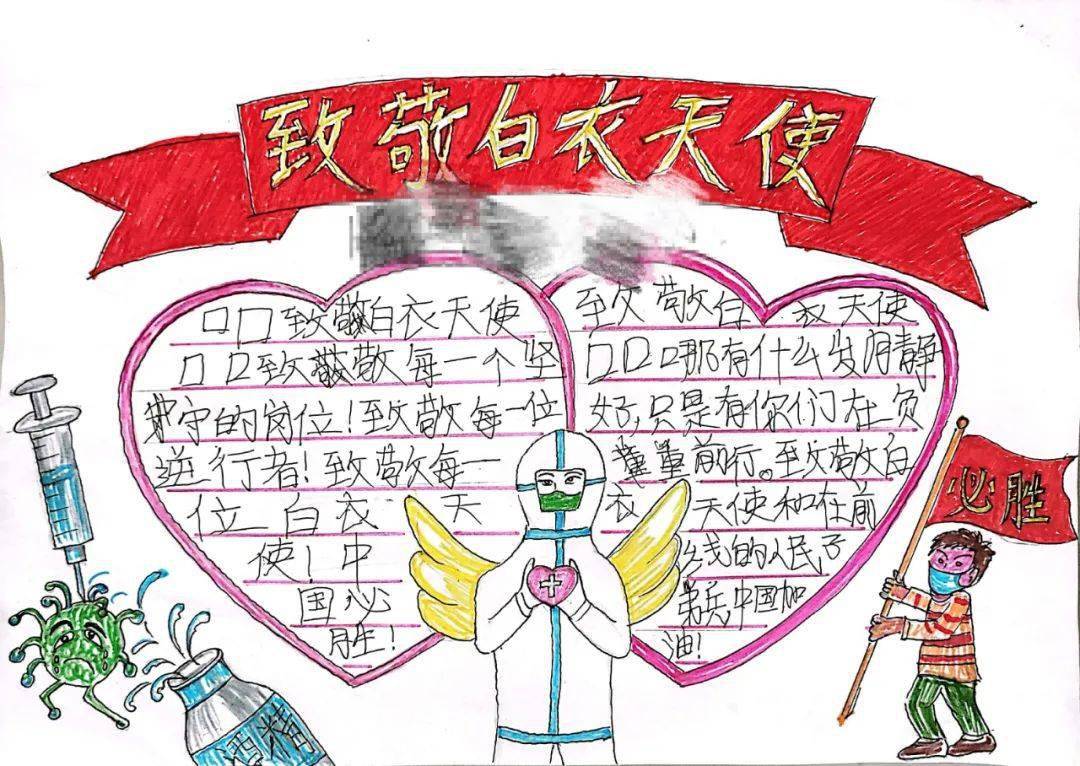 致敬白衣天使
口口致敬白衣天使
口口致敬敬每一个坚
守的岗位!致敬每一位
逆行者!致敬每一
位白衣天
使!中
国必
胜!
致敬白衣天使
口口口哪有什么岁月静
好,只是有你们在负
重前行。致敬白
衣天使和在前
线的人民子
弟兵,中国加
油!
必胜
酒精